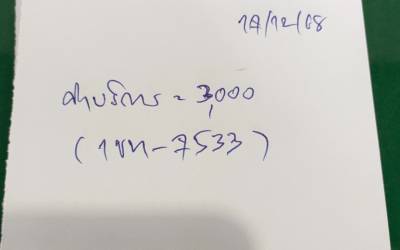 17/12/68
ค่าบริการ = 3,000
(1ขท-7533)